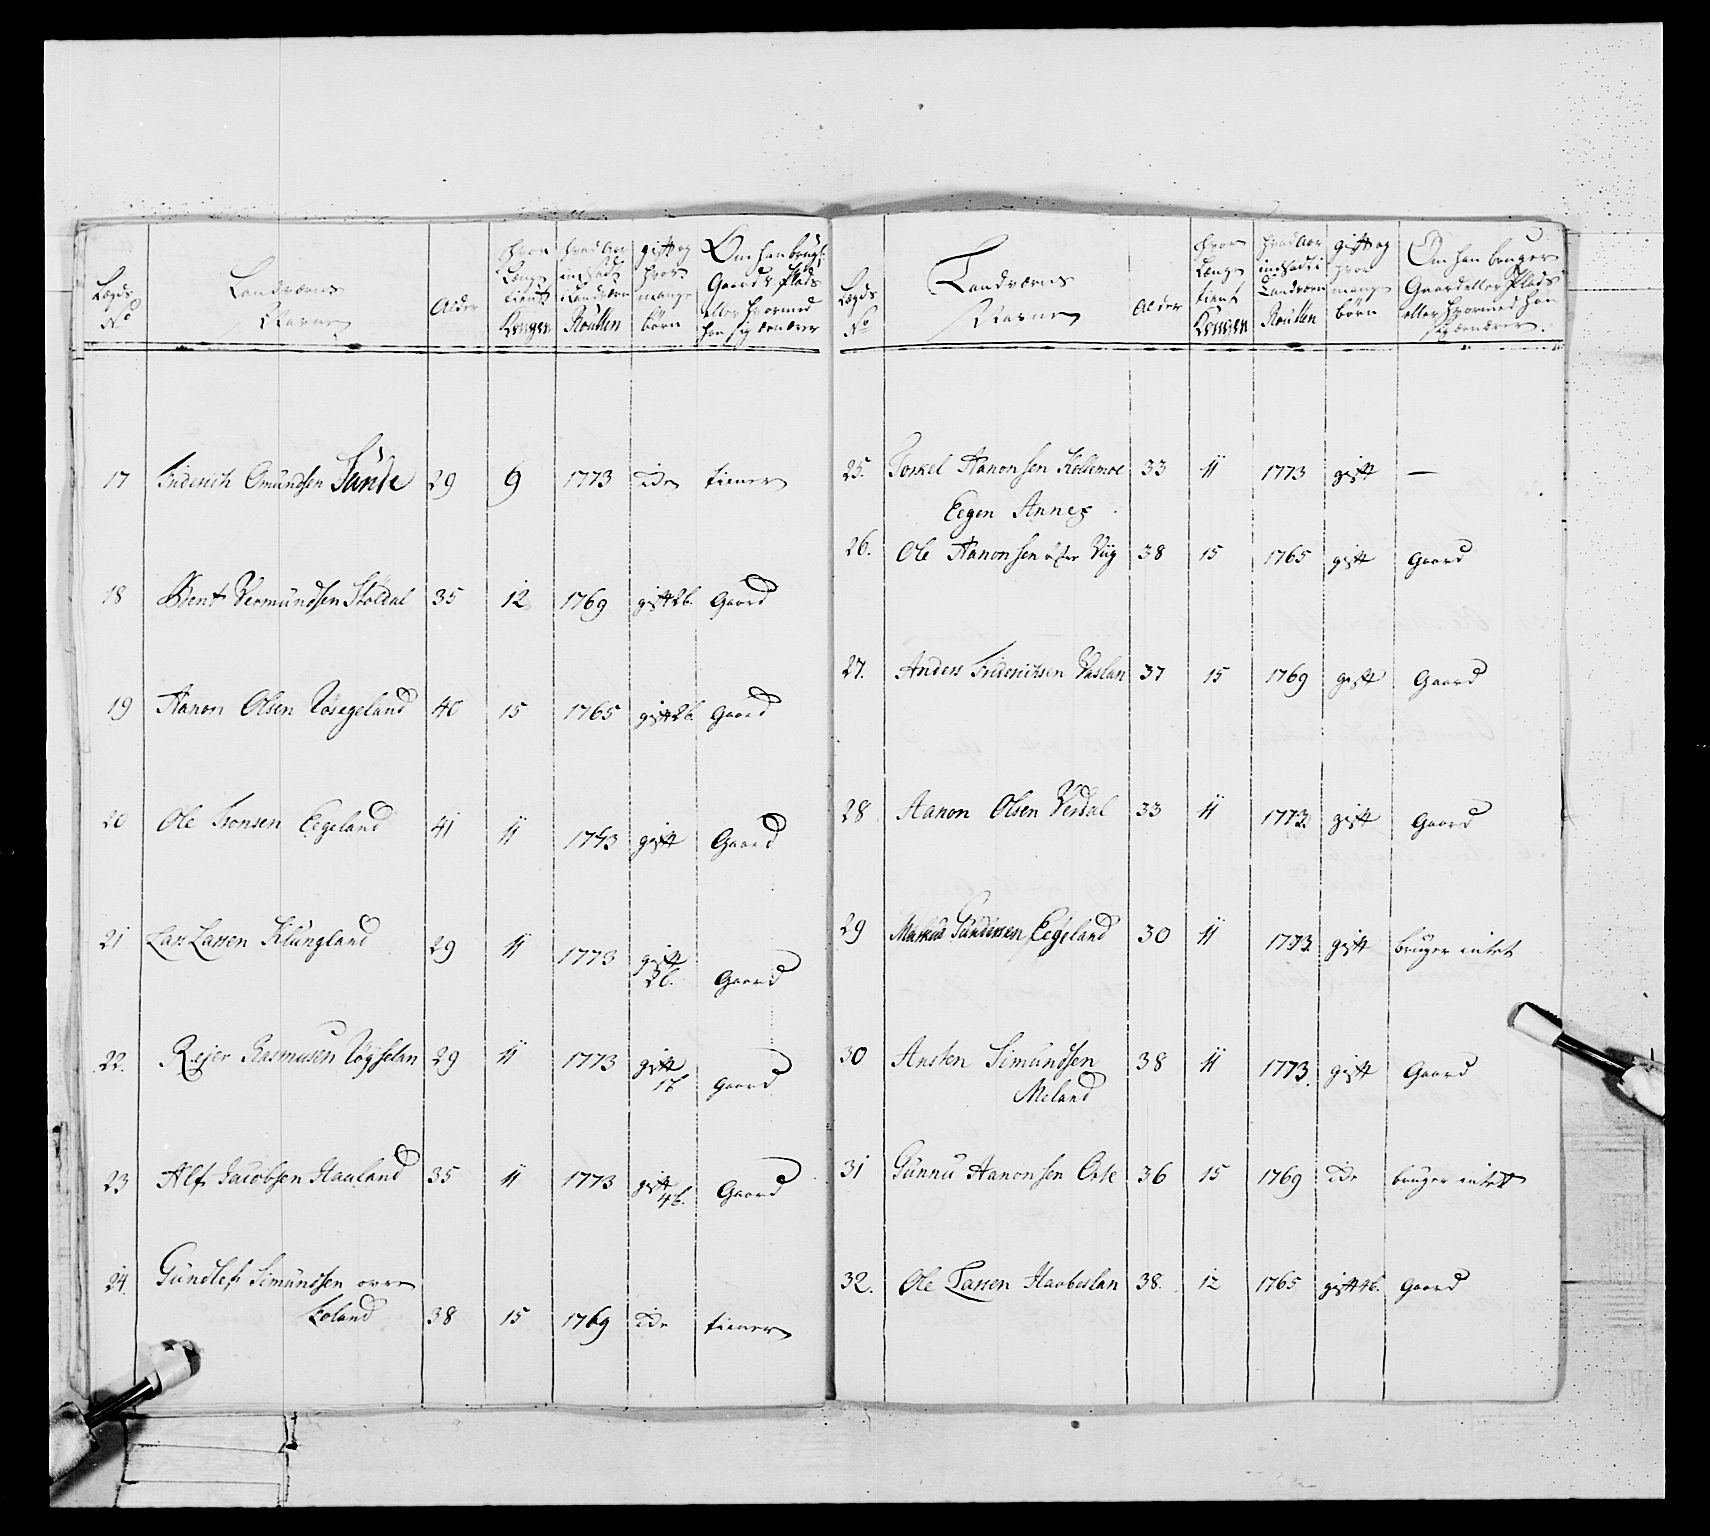 Lægds No
Landværns Navne
Alder
Hvor Længe tient Kongen
Hvad Aar indsadt i Landværn Roullen
gift og hvor mange börn
Om han brug: Gaard r Plads eller hvormed han sig ernærer
17 Friderich Omündsen Sünde 29 9 1773 Ide tiener
18 Bent Vermündsen Stöldal 35 12 1769 gift 2b. Gaard
19 Aanon Olsen Vösegeland 40 15 1765 gift 2b. Gaard
20 Ole Tronsen Eegeland 41 11 1773 gift Gaard
21 Lars Larsen Klüngland 29 11 1773 gift
2b. Gaard
22. Rejer Rasmusen Vögselan 29 11 1773 gift
1b Gaard
23 Alf Jacobsen Hauland 35 11 1773 gift
4b. Gaard
24. Gündlef Simündsen ovre
Foland 38 15 1769 Ide tiener
Lægds No
Landværns Navne
Alder
Hvor Længe tient Kongen
Hvad Aar indsadt i Landværn Roullen
gift og hvor mange börn
Om han bruger Gaard eller Plads eller hvormed han sig ernærer.
25. Torkel Aanonsen Kollemoe 33 11 1773 gift —
Eegen Annex
26. Ole Aanonsen öfre Viig 38 15 1765 gift Gaard
27. Anders Friderichsen Vaslan 37 15 1769 gift Gaard
28 Aanon Olsen Verdal 33 11 1773. gift Gaard
29 Markus Gündersen Eegeland 30 11 1773. gift bruger intet
30 Ansten Simündsen
Meland 38 11 1773. gift Gaard
31 Günnü Aanonsen Orte 36 15 1769 Ide bruger intet
32. Ole Larsen Haabeslan 38. 12 1765 gift 4b. Gaard